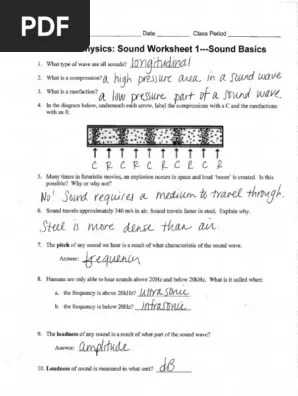 PDF
Date Class Period
hysics: Sound Worksheet 1---Sound Basics
1. What type of wave are all sounds? longitudinal
2. What is a compression? a high pressure area in a sound wave
3. What is a rarefaction? a low pressure part of a sound wave
4. In the diagram below, underneath each arrow, label the compressions with a C and the rarefactions
with an R.
C R C R C R C R C
5. Many times in futuristic movies, an explosion occurs in space and loud 'boom' is created. Is this
possible? Why or why not?
No! Sound requires a medium to travel through.
6. Sound travels approximately 340 m/s in air. Sound travels faster in steel. Explain why.
Steel is more dense than air.
7. The pitch of any sound we hear is a result of what characteristic of the sound wave.
Answer: frequency
8. Humans are only able to hear sounds above 20Hz and below 20kHz. What is it called when:
a. the frequency is above 20kHz? ultrasonic
b. the frequency is below 20Hz? infrasonic
9. The loudness of any sound is a result of what part of the sound wave?
Answer: amplitude
10. Loudness of sound is measured in what unit? dB